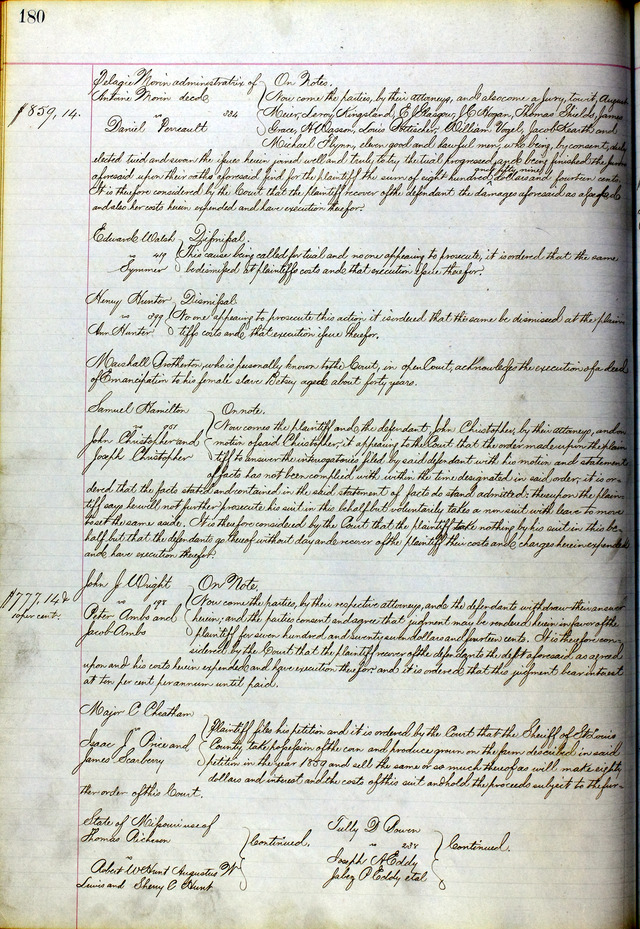 180
Pelagie Morin administratrix of On Notes.
Antoine Morin decd. Now come the parties, by their attorneys, and also come a Jury, to wit, August
$859,14. vs 334 Meier, Leroy Kingsland, E Glasgow, J C Hogan, Thomas Shields, James
Daniel Perreault Grace, H Wasson, Louis William Vogel, Jacob Heath and
Michael Flynn, eleven good and lawful men, who being, by consent, duly
elected tried and sworn the issues herein joined well and truly to try, the trial progressed and being finished the jurors
aforesaid upon their oaths aforesaid find for the plaintiff the sum of eight hundred and fifty nine dollars and fourteen cents.
It is therefore considered by the Court that the plaintiff recover of the defendant the damages aforesaid as aforesaid
and also her costs herein expended and have execution therefor.
Edward Walsh Dismissal.
vs 419 This cause being called for trial and no one appearing to prosecute, it is ordered that the same
Symmer be dismissed at plaintiffs costs and that execution issue therefor.
Henry Hunter Dismissal
vs 399 No one appearing to prosecute this action it is ordered that the same be dismissed at the plain
Ann Hunter tiffs costs and that execution issue therefor.
Marshall Brotherton, who is personally known to the Court, in open Court, acknowledges the execution of a deed
of Emancipation to his female slave Betsy aged about forty years.
Samuel Hamilton On note.
vs Now comes the plaintiff and the defendant John Christopher, by their attorneys, and on
John Christopher and motion of said Christopher, it appearing to the Court that the order made upon the plain
Joseph Christopher tiff to answer the interrogatories filed by said defendant with his motion and statement
of facts has not been complied with within the time designated in said order; it is or-
dered that the facts stated and contained in the said statement of facts do stand admitted: thereupon the plain-
tiff says he will not further prosecute his suit in this behalf but voluntarily takes a non suit with leave to move
to set the same aside. It is therefore considered by the Court that the plaintiff take nothing by his suit in this be-
half but that the defendants go thereof without day and recover of the plaintiff their costs and charges herein expended
and have execution therefor.
John J Wright On Note,
$777.14 vs 198 Now come the parties, by their respective attorneys, and the defendants withdraw their answer
10 per cent. Peter Ambs and herein; and the parties consent and agree that judgment may be rendered herein in favor of the
Jacob Ambs plaintiff for seven hundred and seventy seven dollars and fourteen cents. It is therefore con-
sidered by the Court that the plaintiff recover of the defendants the debt aforesaid as agreed
upon and his costs herein expended and have execution therefor: and it is ordered that this judgment bear interest
at ten per cent per annum until paid.
Major C Cheatham
vs Plaintiff files his petition and it is ordered by the Court that the Sheriff of St Louis
Isaac J Price and County take possession of the corn and produce grown on the farm described in said
James Scarbery petition in the year 1859 and sell the same or so much thereof as will make eighty
dollars and interest and the costs of this suit and hold the proceeds subject to the fur-
ther order of this Court.
State of Missouri use of Tully D Bowen
Thomas Richeson Continued. vs 238 Continued.
vs Joseph A Eddy
Robert W Hunt Augustus W Jabez P Eddy et al
Lewis and Sherry C Hunt